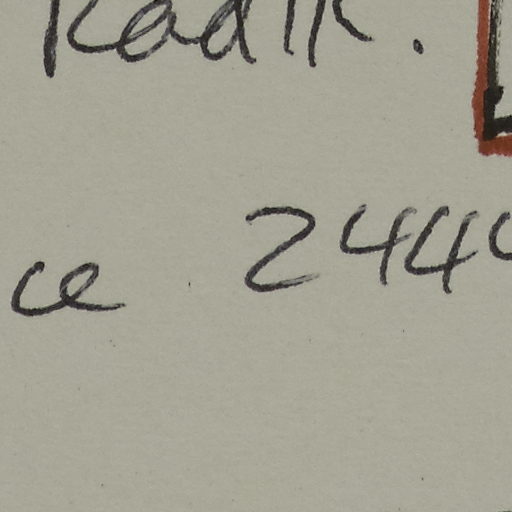 Radik.
ce 244